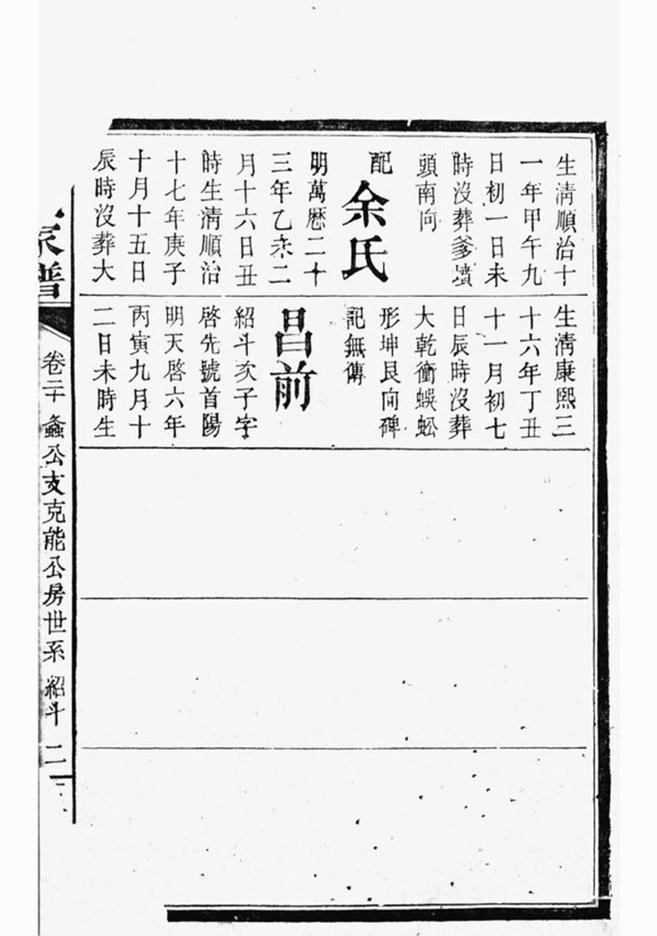 生清順治十
一年甲午九
日初一日未
時沒葬爹墳
頭南向
配
余氏
明萬厯二十
三年乙未二
月十六日丑
時生清順治
十七年庚子
十月十五日
辰時沒葬大
生清康熙三
十六年丁丑
十一月初七
日辰時沒葬
大乾衝蜈蚣
形坤艮向碑
記無傳
昌前
紹斗次子字
啓先號首陽
明天啓六年
丙寅九月十
二日未時生
家譜
卷二十 螽公支克能公房世系 紹斗 二